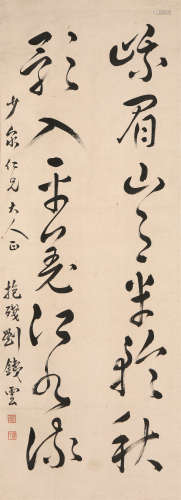 峨眉山月半轮秋
影入平羌江水流
少泉仁兄大人正
抱残刘铁云